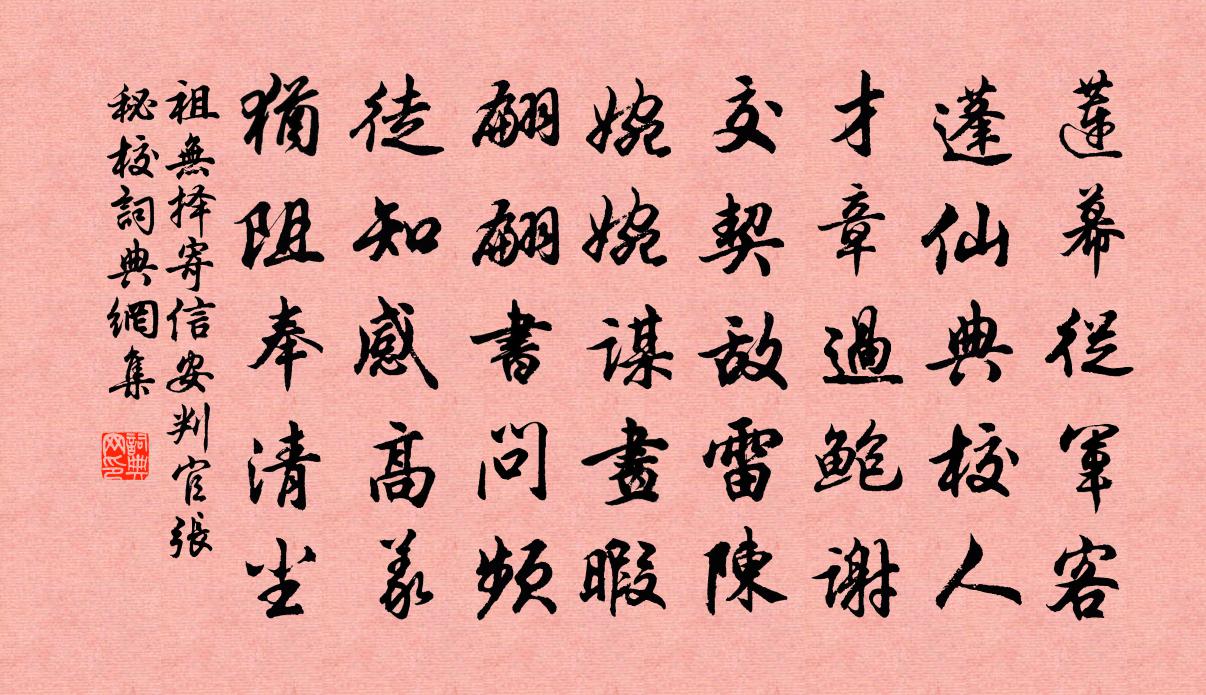 蓮幕從軍客
蓬仙典校人
才章過鮑謝
交契敌雷陳
婉婉謀畫暇
翩翩書问頻
徒知感高义
猶阻奉清尘
祖無择寄信安判官張
秘校詞典網集
詞典
网印